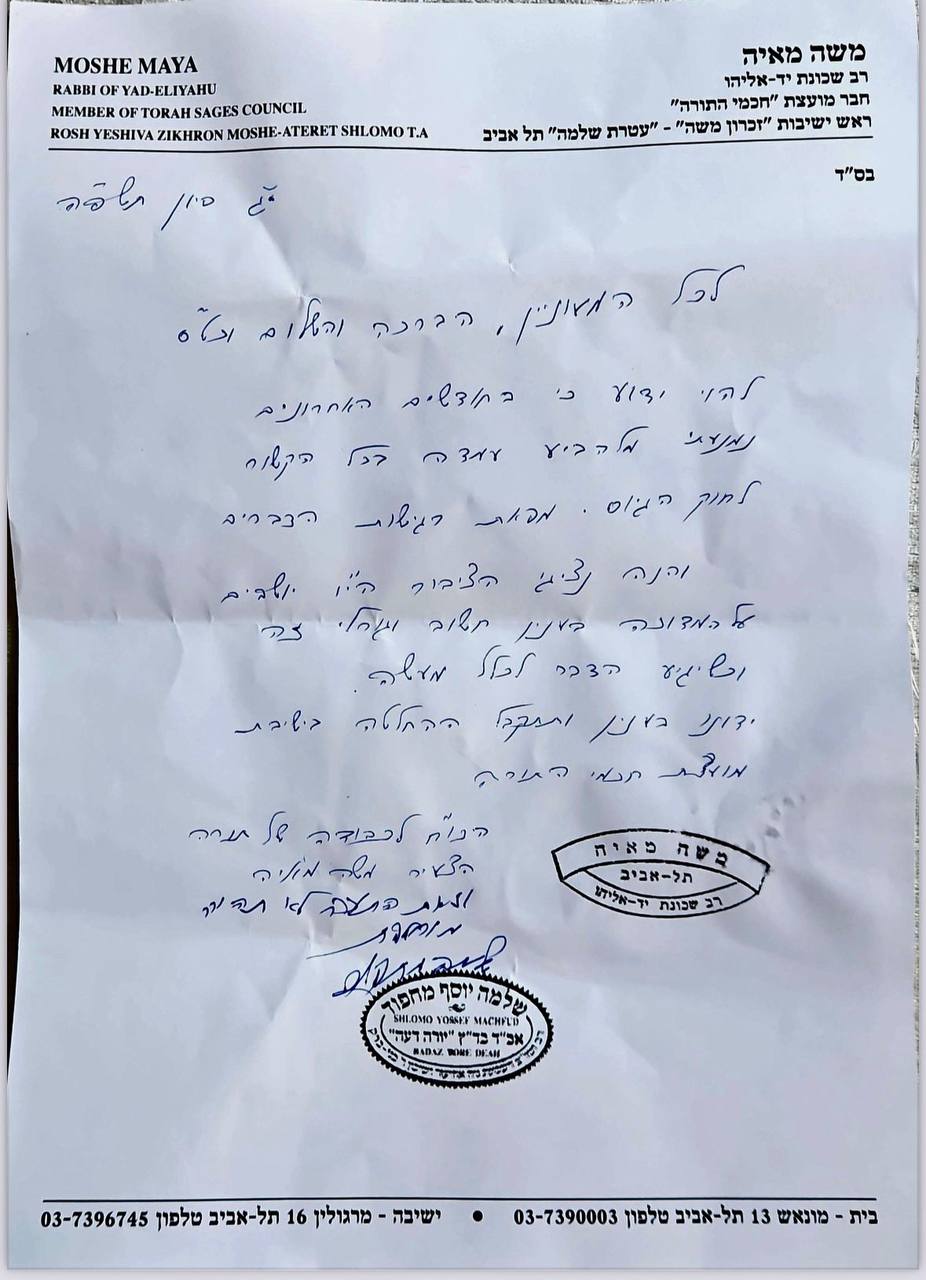 MOSHE MAYA
RABBI OF YAD-ELIYAHU
MEMBER OF TORAH SAGES COUNCIL
ROSH YESHIVA ZIKHRON MOSHE-ATERET SHLOMO T.A
משה מאיה
רב שכונת יד-אליהו
חבר מועצת "חכמי התורה"
ראש ישיבות "זכרון משה" - "עטרת שלמה" תל אביב
בס"ד
י"ג סיון תשפ"ה
לכל המעוניין, הברכה והשלום וכט"ס
להוי ידוע כי בחודשים האחרונים
נמנעתי מלהביע עמדה בכל הקשור
לחוק הגיוס. מפאת רגישות הדברים
והנה נציגי הציבור הי"ו יושבים
על המדוכה בענין חשוב וגורלי זה
וכשיגיע הדבר לכלל מעשה.
ידונו בענין ותתקבל ההחלטה בישיבת
מועצת חכמי התורה
הכו"ח לכבודה של תורה
הצעיר משה מאיה
לא
משה מאיה
תל-אביב
רב שכונת יד-אליהו
שלמה יוסף מחפוד
SHLOMO YOSSEF MACHFUD
אב"ד בד"ץ "יורה דעה"
BADAZ YORE DEAH
בית - מונאש 13 תל-אביב טלפון 03-7390003 • ישיבה - מרגולין 16 תל-אביב טלפון 03-7396745